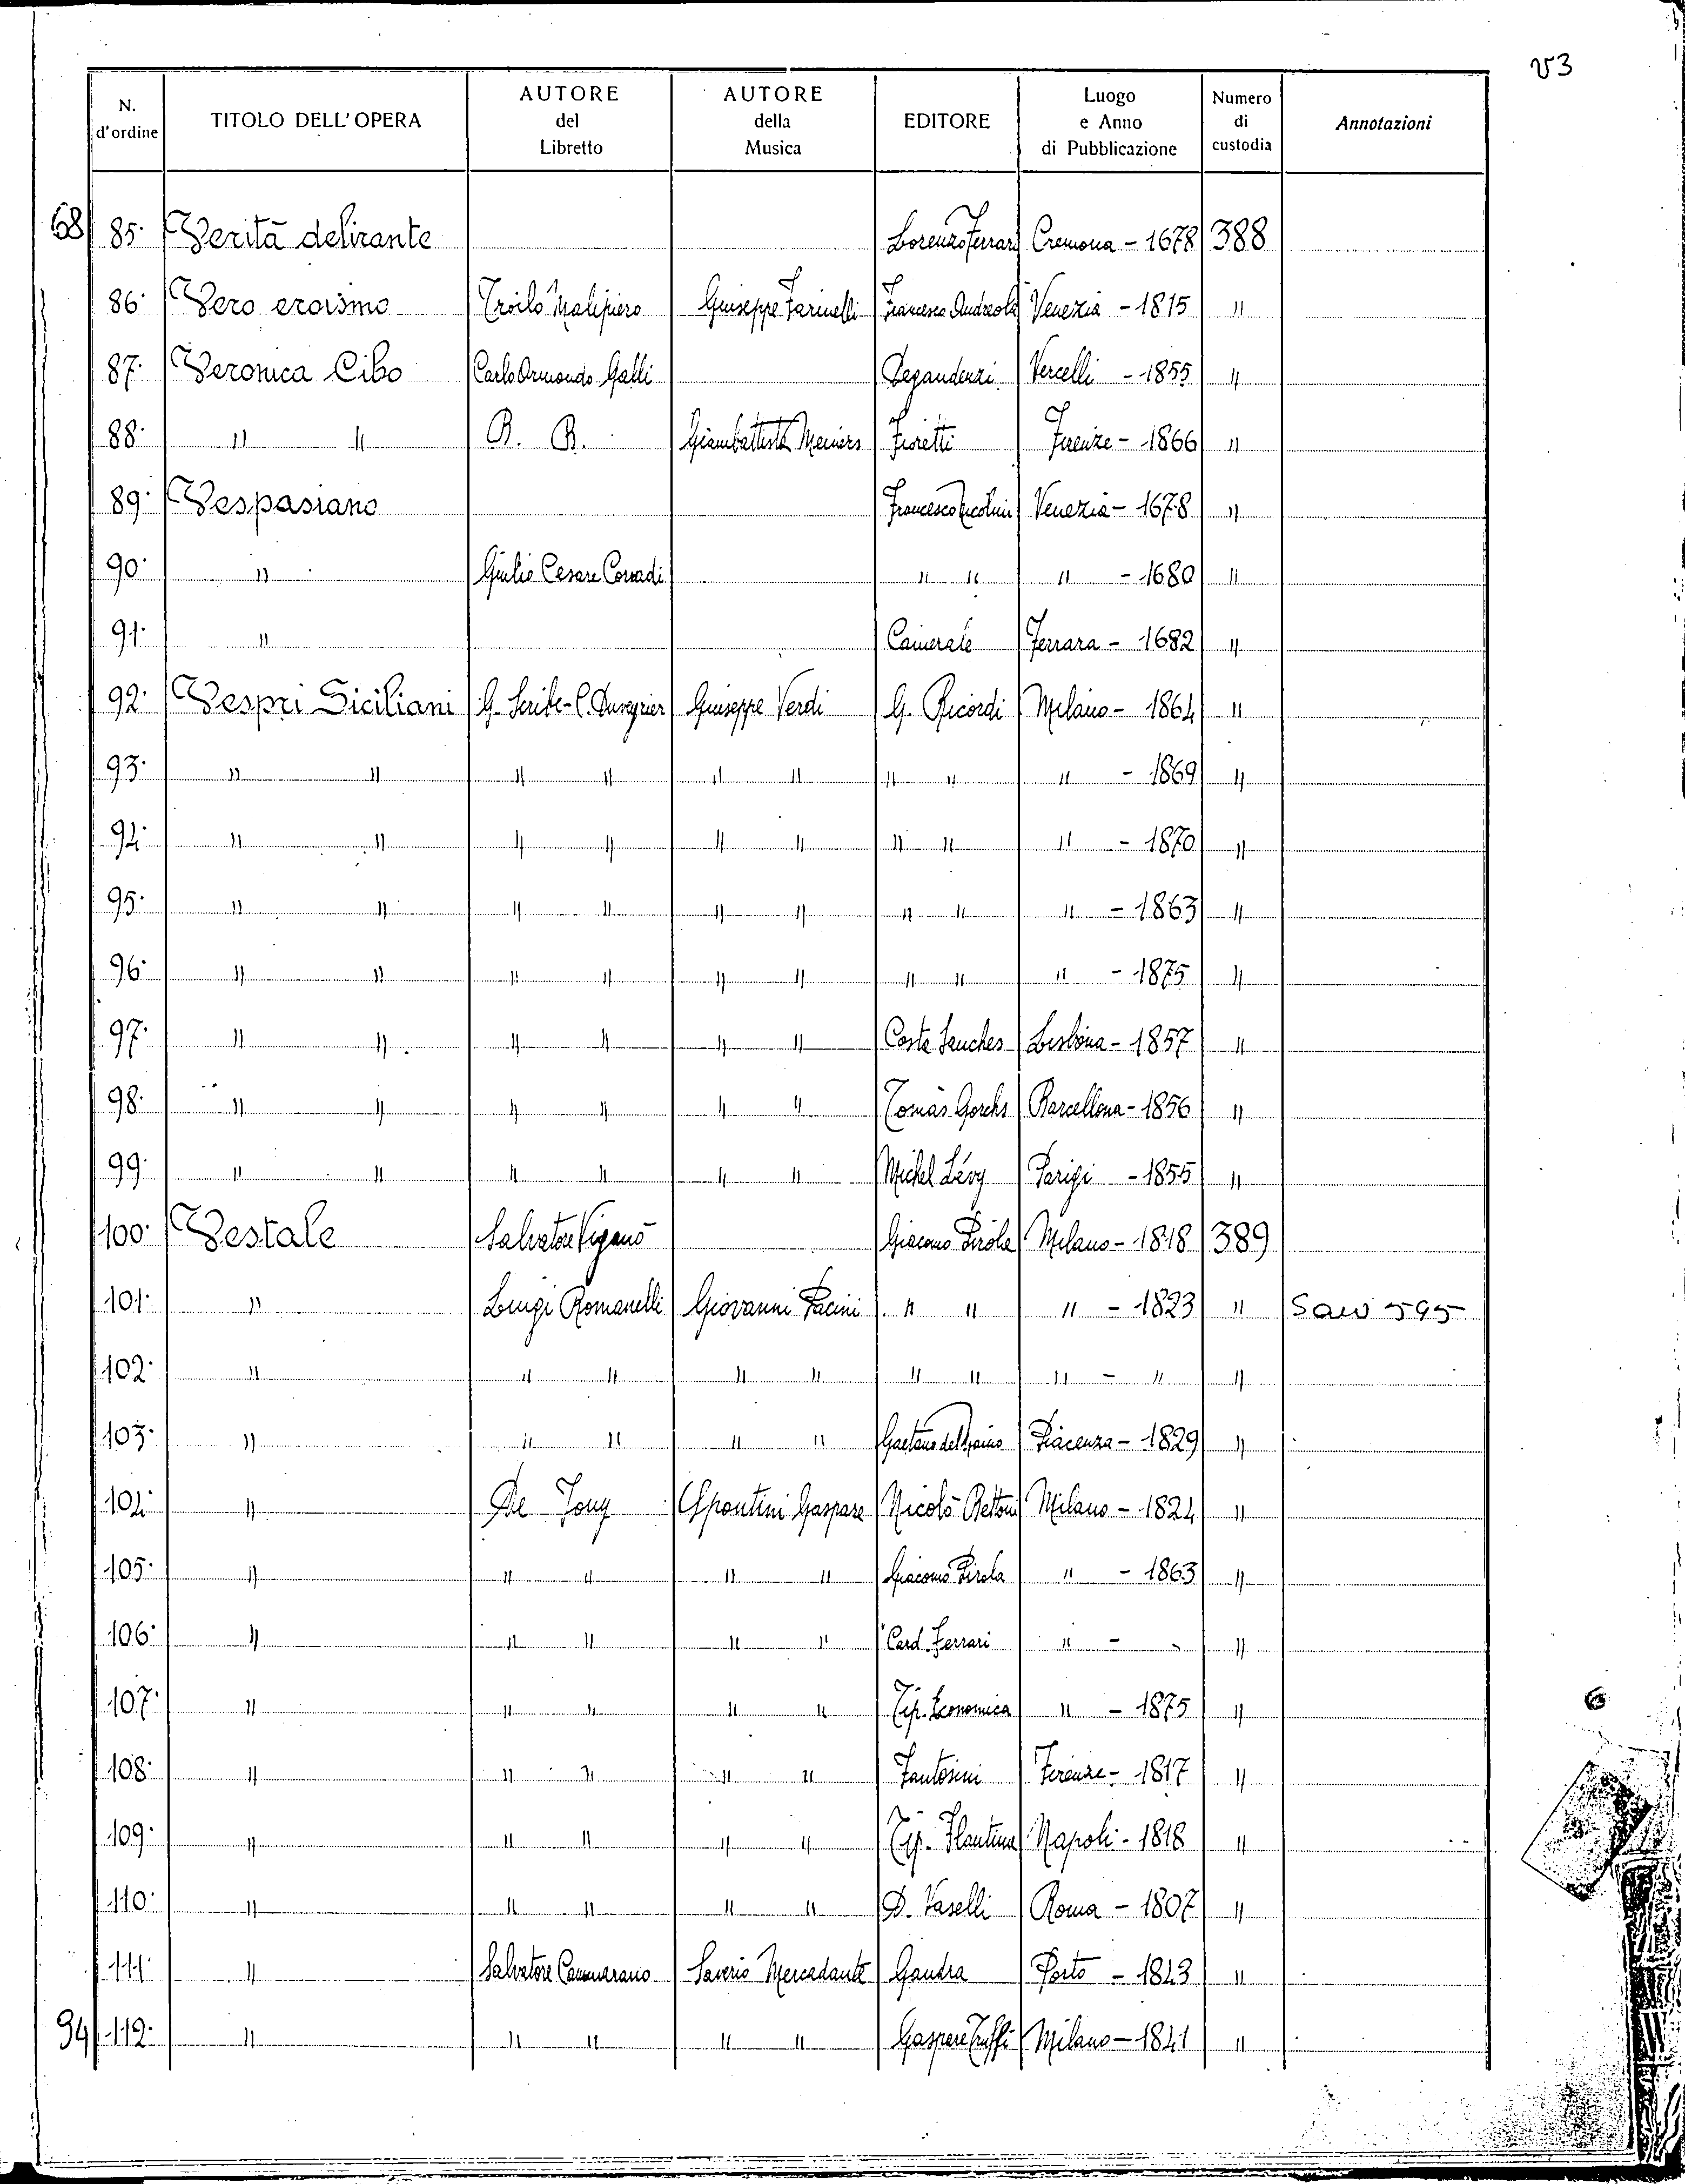 V3
N. d'ordine | TITOLO DELL'OPERA | AUTORE del Libretto | AUTORE della Musica | EDITORE | Luogo e Anno di Pubblicazione | Numero di custodia | Annotazioni
68 85. Verità delirante Lorenzo Ferrari Cremona - 1678 388
86. Vero eroismo Troilo Malipiero Giuseppe Farinelli Francesco Andreola Venezia - 1815 "
87. Veronica Cibo Carlo Armondo Galli Degaudenzi Vercelli - 1855 "
88. " " B. B. Giambattista Meiners Fioretti Firenze - 1866 "
89. Vespasiano Francesco Nicolini Venezia - 1678 "
90. " Giulio Cesare Corradi " " " - 1680 "
91. " Camerale Ferrara - 1682 "
92. Vespri Siciliani G. Scribe - C. Duveyrier Giuseppe Verdi G. Ricordi Milano - 1864 "
93. " " " " " " " " " - 1869 "
94. " " " " " " " " " - 1870 "
95. " " " " " " " " " - 1863 "
96. " " " " " " " " " - 1875 "
97. " " " " " " Costa Sanches Lisbona - 1857 "
98. " " " " " " Tomàs Gorchs Barcellona - 1856 "
99. " " " " " " Michel Lévy Parigi - 1855 "
100. Vestale Salvatore Viganò Giacomo Pirola Milano - 1818 389
101. " Luigi Romanelli Giovanni Pacini " " " - 1823 " Saw 595
102. " " " " " " " " - " "
103. " " " " " Gaetano del Maino Piacenza - 1829 "
104. " De Jouy Spontini Gaspare Nicolò Bettoni Milano - 1824 "
105. " " " " " Giacomo Pirola " - 1863 "
106. " " " " " Card. Ferrari " - "
107. " " " " " Tip. Economica " - 1875 "
108. " " " " " Fantosini Firenze - 1817 "
109. " " " " " Tip. Flautina Napoli - 1818 "
110. " " " " " D. Vaselli Roma - 1807 "
111. " Salvatore Cammarano Saverio Mercadante Gandra Porto - 1843 "
94 112. " " " " " Gaspere Truffi Milano - 1841 "